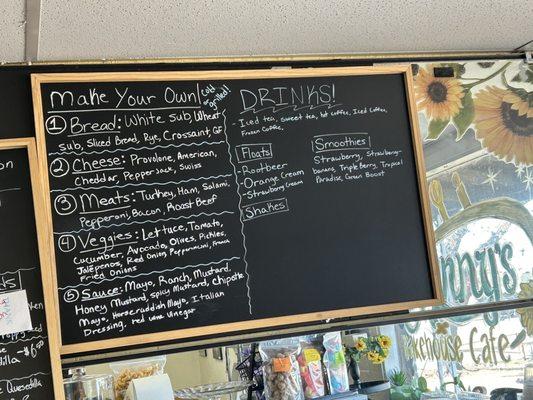 Make Your Own!
Cold
or
grilled!
① Bread: White sub, Wheat
sub, Sliced Bread, Rye, Crossaint, GF
② Cheese: Provolone, American,
Cheddar, Pepper Jack, Swiss
③ Meats: Turkey, Ham, Salami,
Pepperoni, Bacon, Roast Beef
④ Veggies: Lettuce, Tomato,
Cucumber, Avocado, Olives, Pickles,
Jalepenos, Red Onion, Pepperoncini, French
Fried Onions
⑤ Sauce: Mayo, Ranch, Mustard,
Honey Mustard, Spicy Mustard, Chipotle
Mayo, Horseraddish Mayo, Italian
Dressing, red wine Vinegar
DRINKS!
- Iced tea, Sweet tea, hot Coffee, Iced Coffee,
Frozen Coffee,
Floats
- Rootbeer
- Orange Cream
- Strawberry Cream
Shakes
Smoothies
Strawberry, Strawberry-
banana, Triple Berry, Tropical
Paradise, Green Boost
nny's
akehouse Cafe
Quesadilla